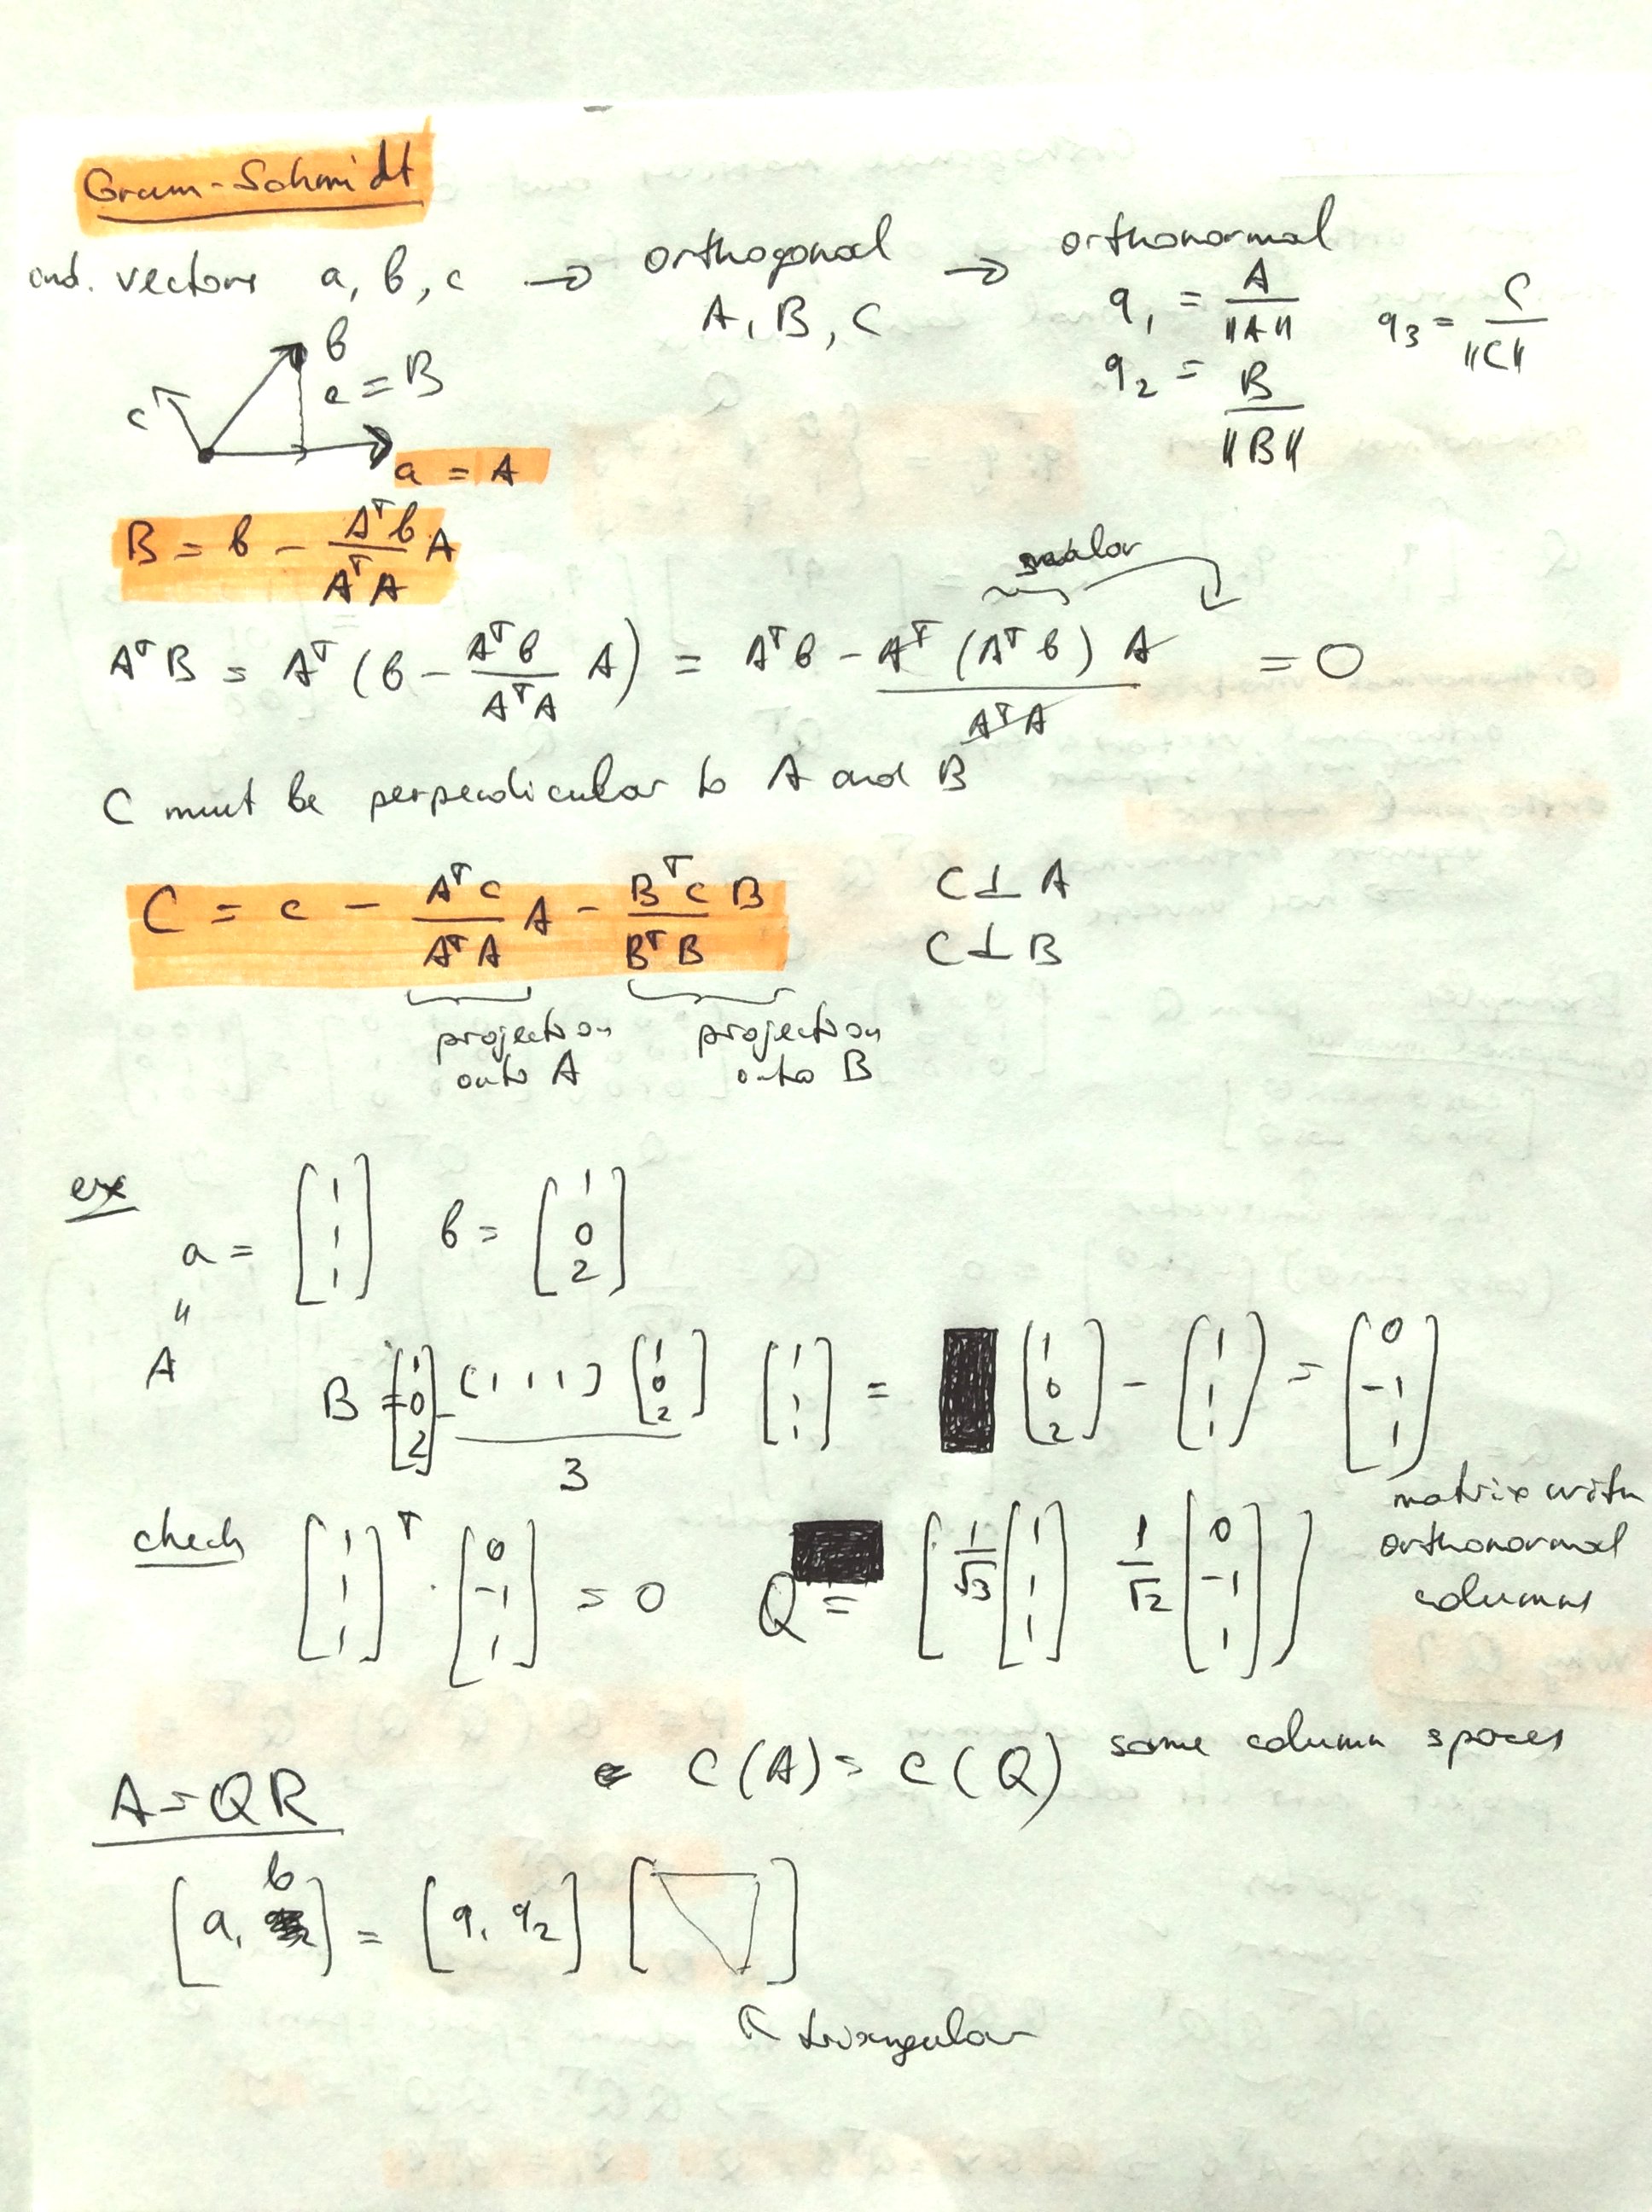 Gram-Schmidt
ind. vectors a, b, c → orthogonal → orthonormal
A, B, C
q₁ = A / ‖A‖
q₃ = C / ‖C‖
q₂ = B / ‖B‖
b
e = B
c
a = A
B = b − (Aᵀb / AᵀA) A
scalar
AᵀB = Aᵀ (b − (AᵀB / AᵀA) A) = Aᵀb − Aᵀ (Aᵀb) A / AᵀA = 0
C must be perpendicular to A and B
C = c − (Aᵀc / AᵀA) A − (Bᵀc / BᵀB) B
C ⊥ A
C ⊥ B
projection onto A
projection onto B
ex
a = [1 1 1] b = [1 0 2]
"
A
B = [1 0 2] − ((1 1 1) [1 0 2] / 3) [1 1 1] = [1 0 2] − [1 1 1] = [0 −1 1]
check [1 1 1]ᵀ · [0 −1 1] = 0
Q = [1/√3 [1 1 1] 1/√2 [0 −1 1]]
matrix with
orthonormal
columns
C(A) = C(Q) same column spaces
A = QR
[a, b] = [q₁ q₂] [ ]
↖ triangular